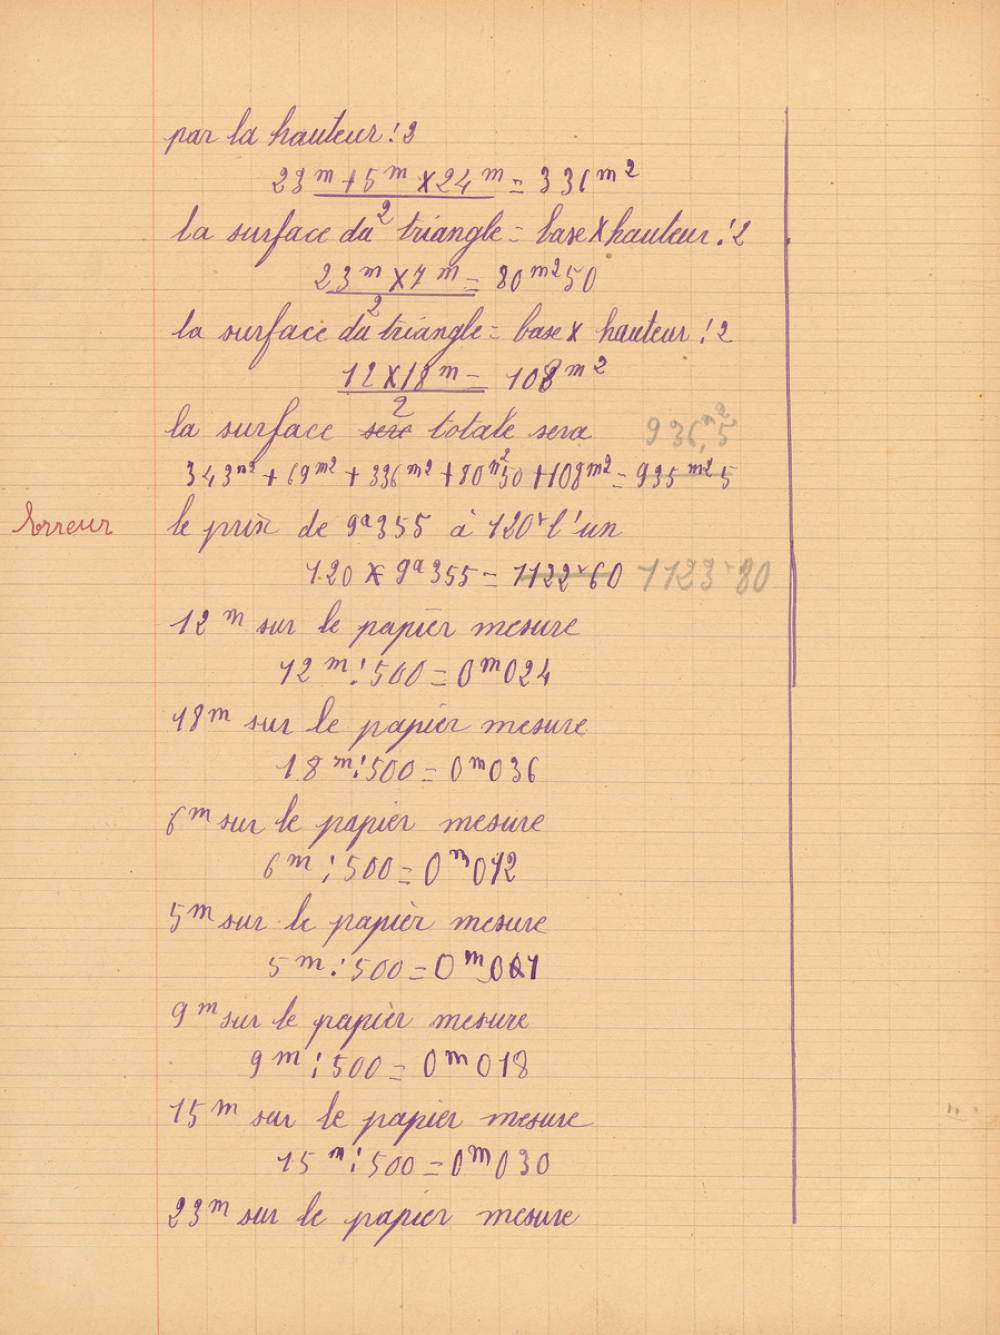 par la hauteur : 2
23m + 5m × 24m = 336m2
2
la surface du triangle = base × hauteur : 2
23m × 7m = 80m250
2
la surface du triangle = base × hauteur : 2
12 × 18m = 108m2
2
la surface sere totale sera 936m2,5
343m2 + 69m2 + 336m2 + 80m250 + 108m2 = 935m25
Erreur le prix de 9a355 à 120f l'un
120 × 9a355 = 1122f60 1123f80
12m sur le papier mesure
12m : 500 = 0m024
18m sur le papier mesure
18m : 500 = 0m036
6m sur le papier mesure
6m : 500 = 0m012
5m sur le papier mesure
5m : 500 = 0m01
9m sur le papier mesure
9m : 500 = 0m018
15m sur le papier mesure
15m : 500 = 0m030
23m sur le papier mesure